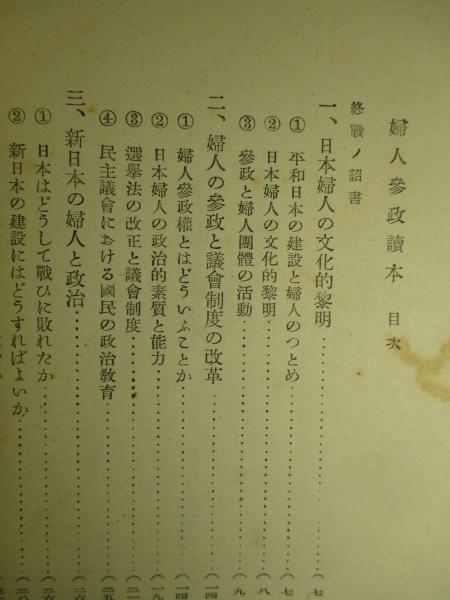 婦人參政讀本 目次
終戰ノ詔書
一、日本婦人の文化的黎明……………(七
① 平和日本の建設と婦人のつとめ……………(七
② 日本婦人の文化的黎明……………(八
③ 參政と婦人團體の活動……………(九
二、婦人の參政と議會制度の改革……………(一四
① 婦人參政權とはどういふことか……………(一四
② 日本婦人の政治的素質と能力……………(一九
③ 選擧法の改正と議會制度……………(二一
④ 民主議會における國民の政治敎育……………(二五
三、新日本の婦人と政治……………(二六
① 日本はどうして戰ひに敗れたか……………(二六
② 新日本の建設にはどうすればよいか……………(二八